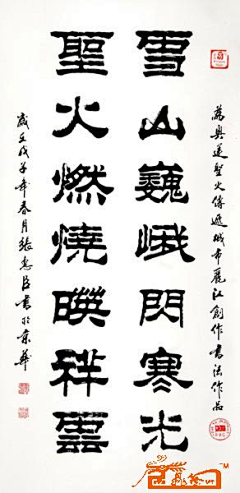 為奧運聖火傳遞城市麗江創作書法作品
雪山巍峨閃寒光
聖火燃燒㬢祥雲
歲在戊子年春月張惠臣書於京華